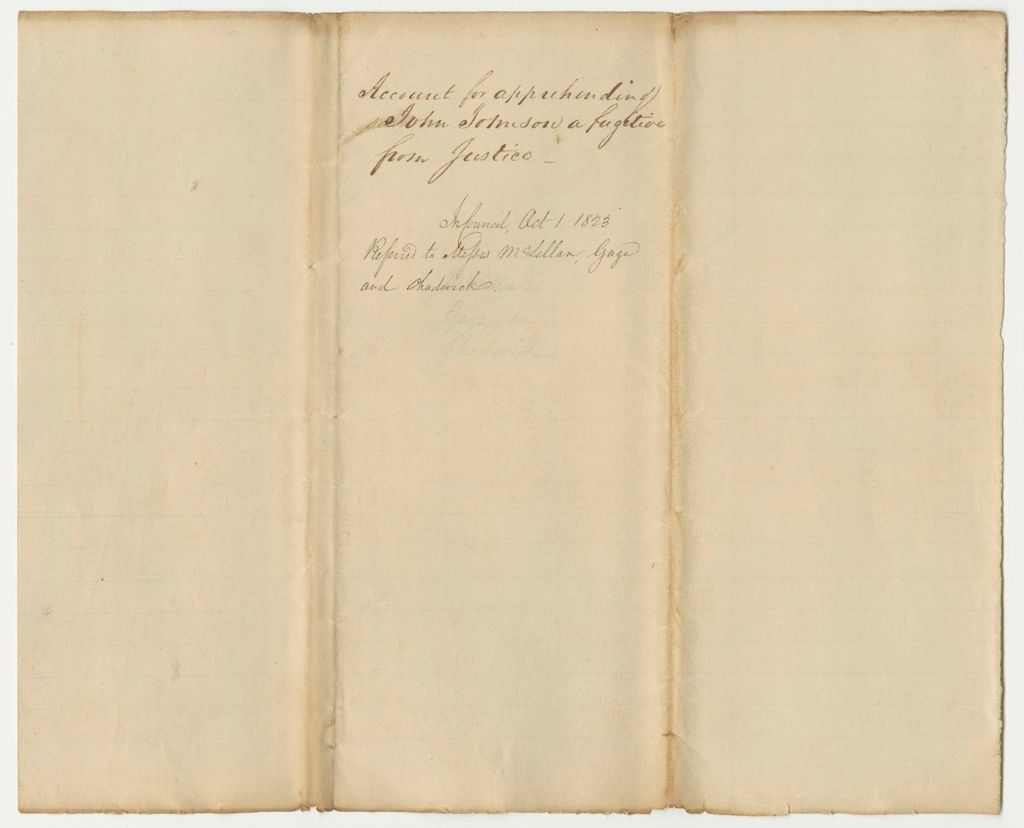 Account for apprehending
John Johnson a fugitive
from Justice –
In Council, Oct 1. 1823
Referred to Messrs McLellan, Gage
and Chadwick.